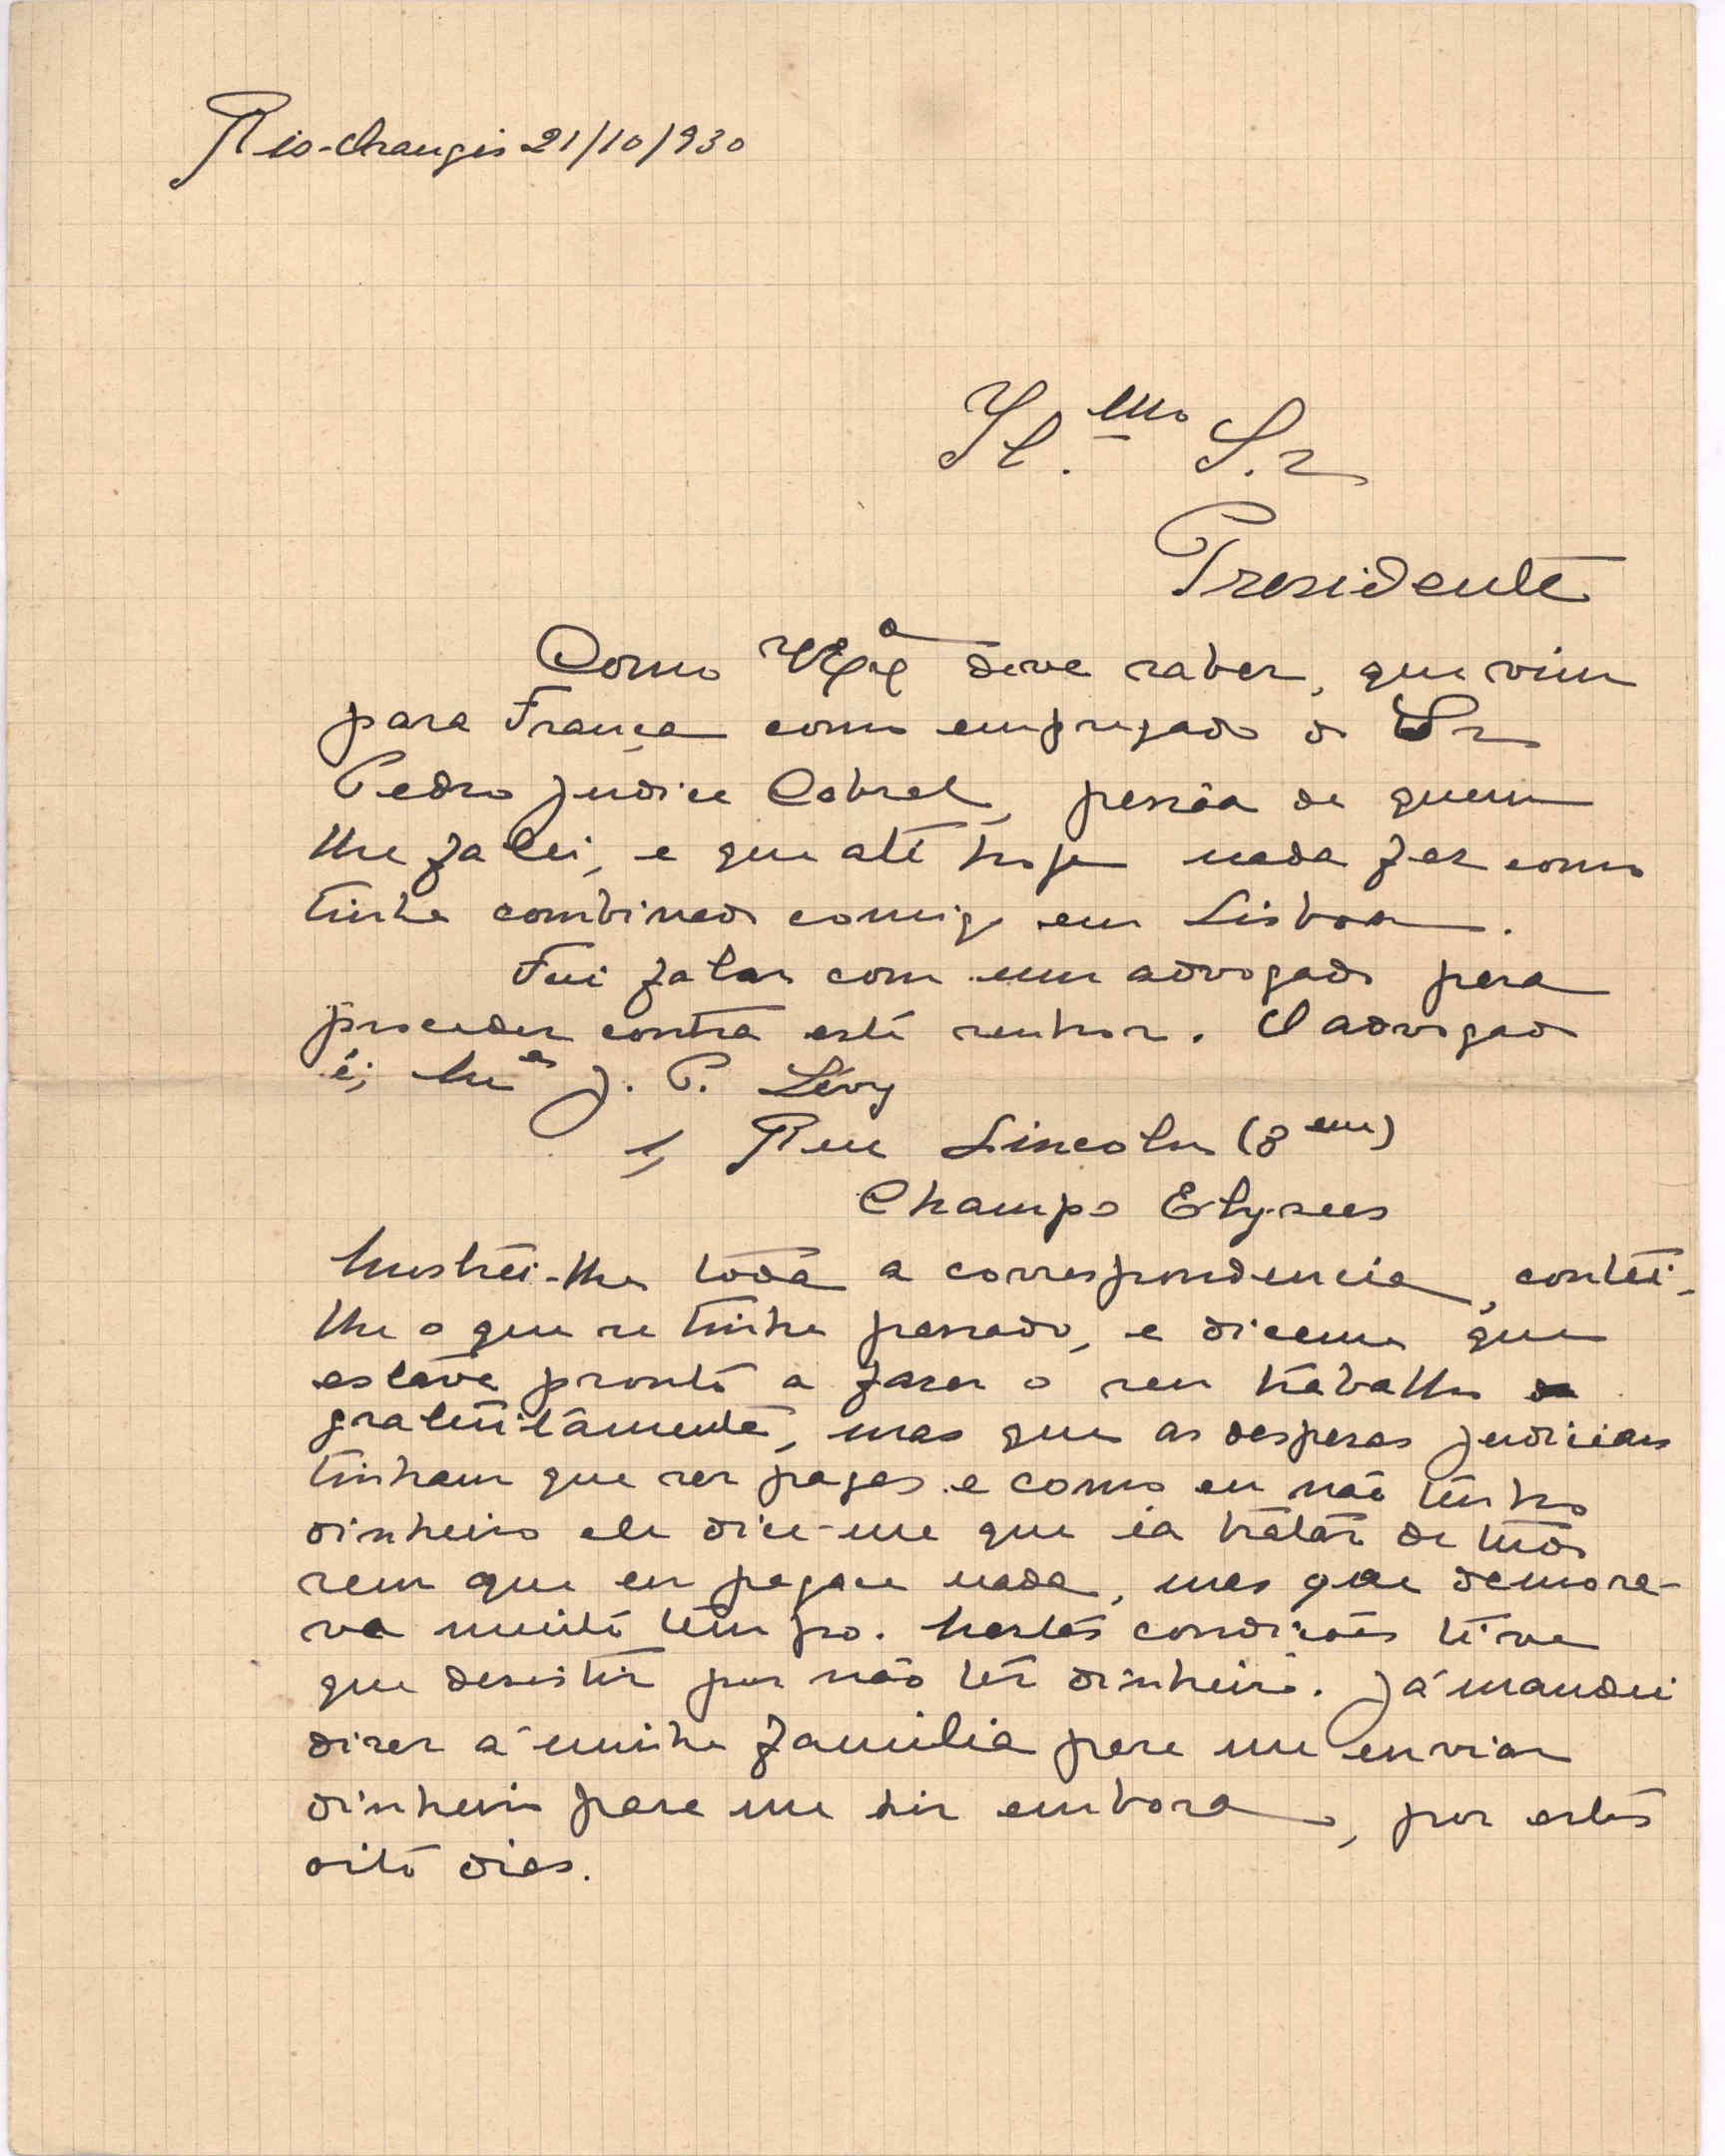 Ris-Orangis 21/10/930
Il.mo S.r
Presidente
Como V Ex.ª deve saber, que vim
para França como empregado do Sr
Pedro Judice Cabral, pessôa de quem
lhe falei, e que até hoje nada fez como
tinha combinado comigo em Lisboa.
Fui falar com um advogado para
proceder contra este senhor. O advogado
é; J. P. Lévy
1, Rue Lincoln (8 em)
Champs Elysees
Mostrei-lhe tôda a correspondencia, contei-
lhe o que se tinha passado, e diceme que
estáva pronto a fazer o seu trabalho
gratuitamente, mas que as despesas judiciais
tinham que ser pagas e como eu não tinha
dinheiro ele dice-me que ia tratar de tudo
sem que eu pagace nada, mas que demora-
va muito tempo. Nestas condições tive
que desistir por não ter dinheiro. Já mandei
dizer á minha familia para me enviar
dinheiro para me hir embora, por estes
oito dias.